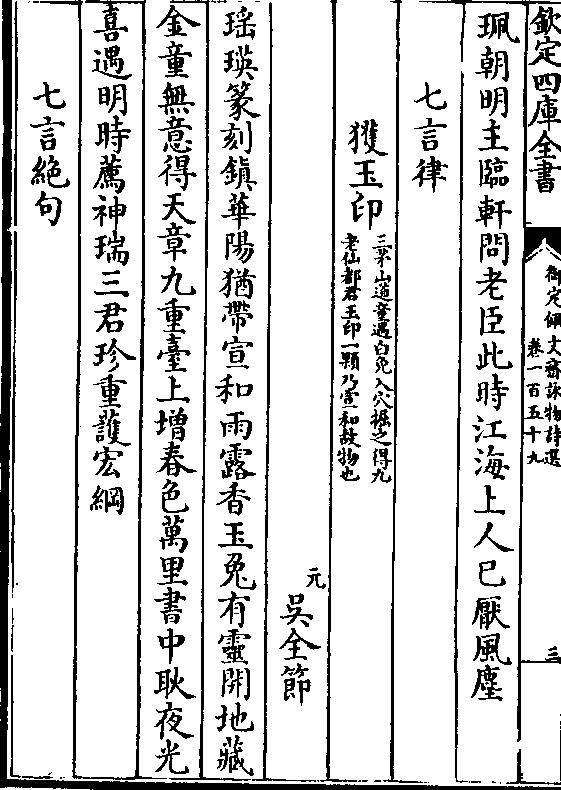 欽定四庫全書
御定佩文齋詠物詩選
卷一百五十九
三
珮朝明主臨軒問老臣此時江海上人已厭風塵
七言律
獲玉印
三茅山道童遇白兔入穴掘之得九
老仙都君玉印一顆乃宣和故物也
元
吳全節
瑶瑛篆刻鎮華陽猶帶宣和雨露香玉兔有靈開地藏
金童無意得天章九重臺上增春色萬里書中耿夜光
喜遇明時薦神瑞三君珍重護宏綱
七言絶句